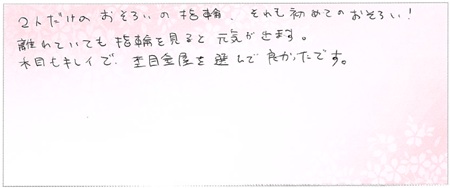 2人だけのおそろいの指輪、それも初めてのおそろい！
離れていても指輪を見ると元気が出ます。
木目もキレイで、杢目金屋を選んで良かったです。